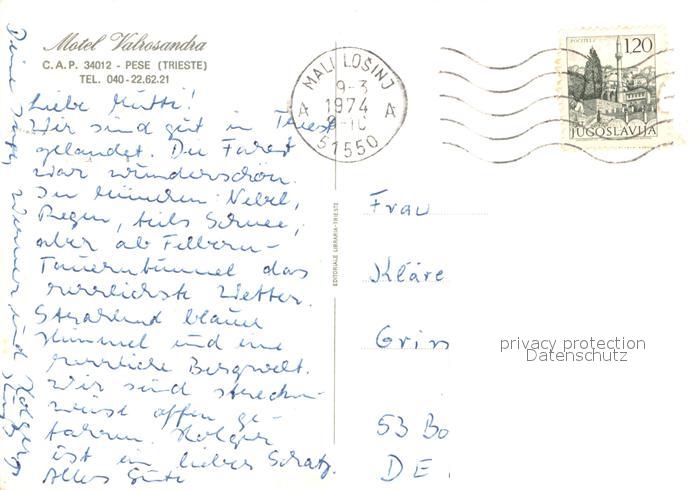 Motel Valrosandra
C.A.P. 34012 - PESE (TRIESTE)
TEL. 040-22.62.21
Liebe Mutti!
Wir sind gut in Triest
gelandet. Die Fahrt
war wunderschön.
In München Nebel,
Regen, teils Schnee,
aber ab Felbern-
Tauerntunnel das
herrlichste Wetter.
Strahlend blauer
Himmel und eine
herrliche Bergwelt.
Wir sind strecken-
weise offen ge-
fahren. Holger
ist ein lieber Schatz.
Alles Gute
Deine
und Holger
EDITORIALE LIBRARIA-TRIESTE
MALI LOŠINJ
A 9-3 A
1974
51550
POČITELJ
1.20
JUGOSLAVIJA
Frau
Kläre
Grin
53 Bo
DE
privacy protection
Datenschutz